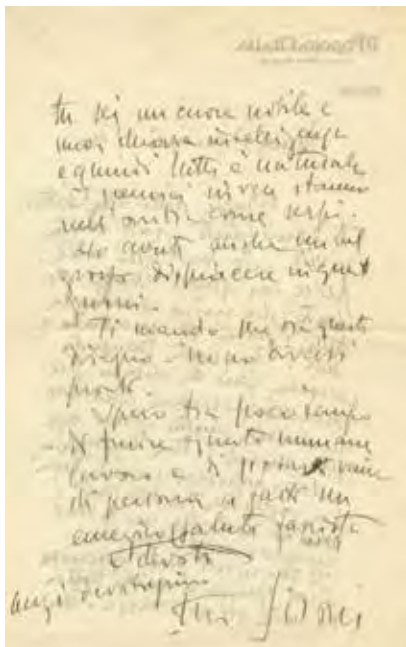 Il Popolo d'Italia
tu sei un cuore nobile e
una chiara intelligenza
e quindi tutto è naturale
i nemici invece stanno
nell'ombra come serpi.
Ho avuto anche un bel
grosso dispiacere in questi
giorni.
Ti mando per ora questo
disegno
pronto.
Spero tra poco tempo
di finire questo immane
lavoro e di poter venire
di persona a farti un
saluto fascista
devoto
anzi devotissimo
tuo Sironi